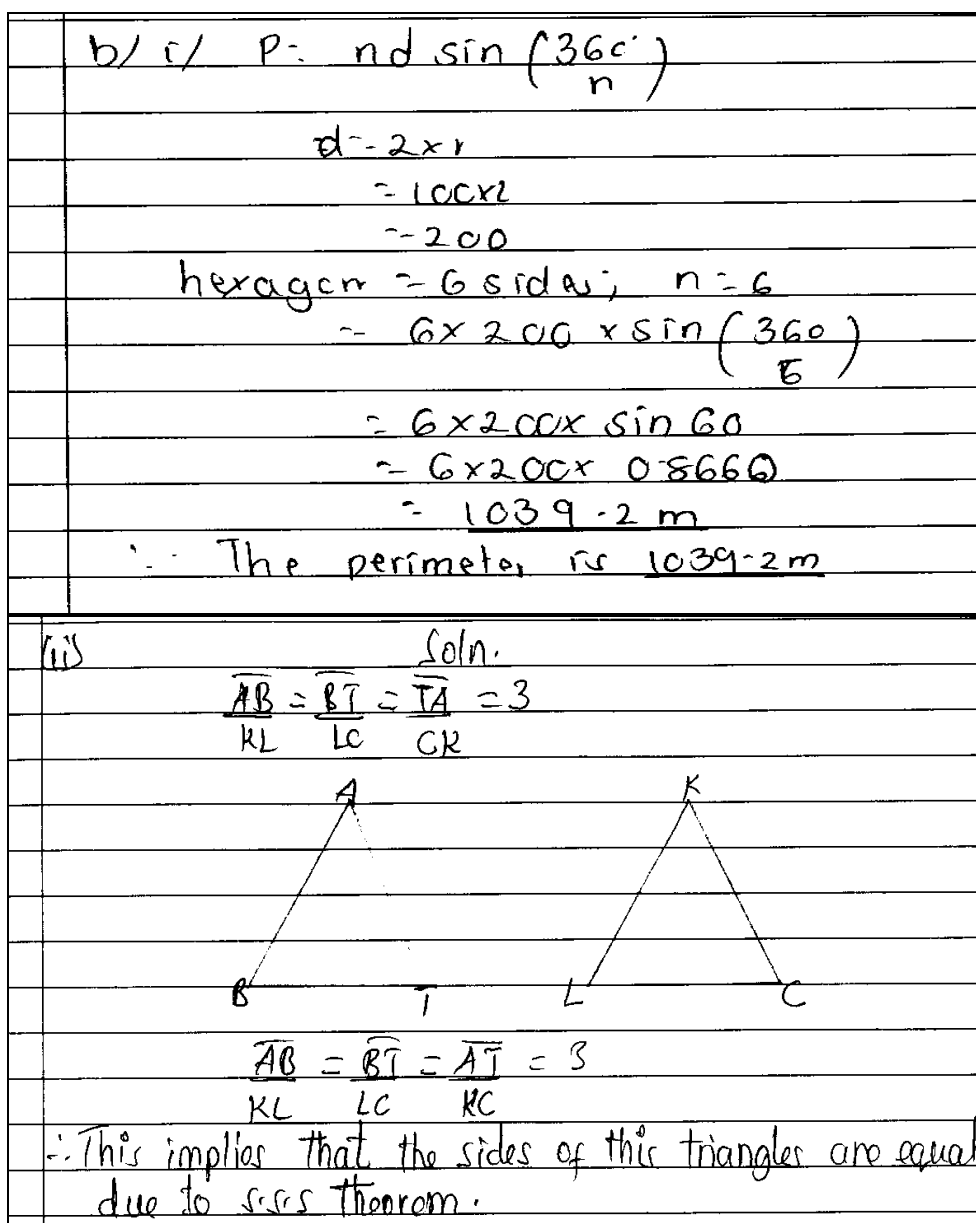 b/ i/ P = nd sin (360°/n)
d = 2 × r
= 100×2
= 200
hexagon = 6 sides; n = 6
= 6 × 200 × sin (360/6)
= 6 × 200 × sin 60
= 6 × 200 × 0.8660
= 1039.2 m
∴ The perimeter is 1039.2 m
(ii) Soln.
AB = BT = TA = 3
KL LC CK
A K
B T L C
AB = BT = AT = 3
KL LC KC
∴ This implies that the sides of this triangles are equal
due to s.s.s Theorem.